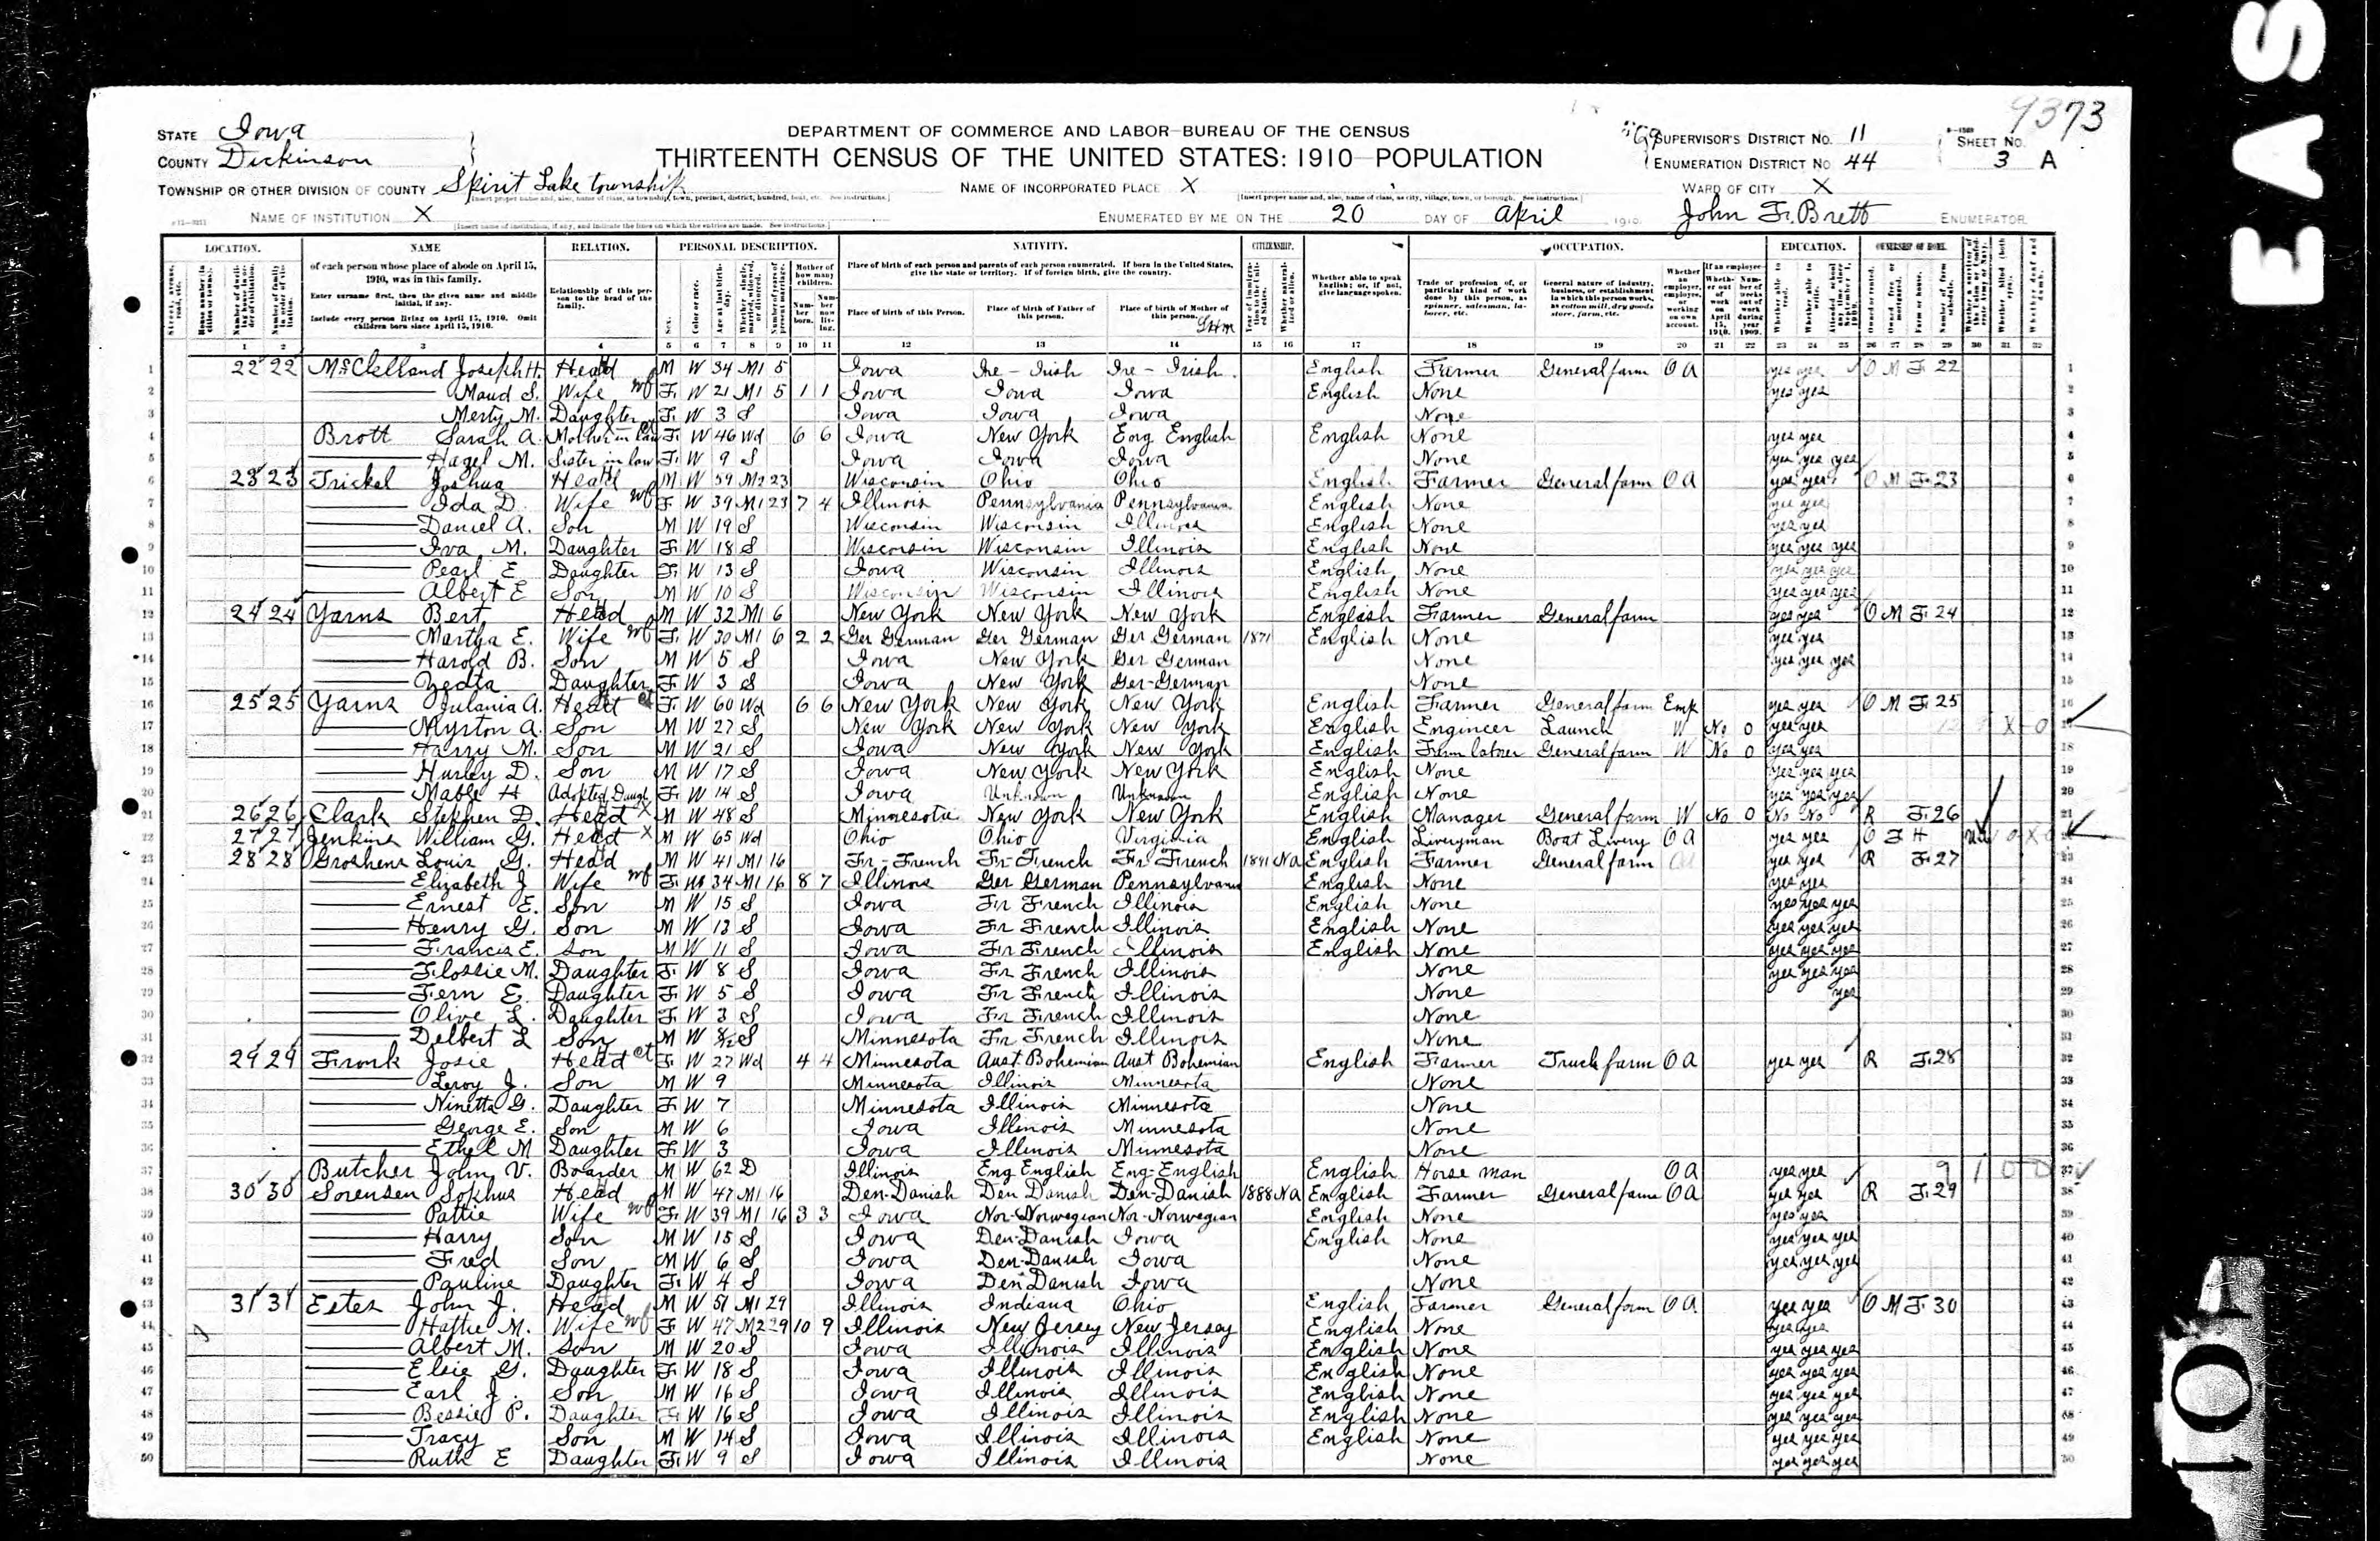 9373
STATE Iowa
COUNTY Dickinson
TOWNSHIP OR OTHER DIVISION OF COUNTY Spirit Lake township
NAME OF INSTITUTION X
DEPARTMENT OF COMMERCE AND LABOR—BUREAU OF THE CENSUS
THIRTEENTH CENSUS OF THE UNITED STATES: 1910—POPULATION
NAME OF INCORPORATED PLACE X
ENUMERATED BY ME ON THE 20 DAY OF April 1910. John Fr. Brett ENUMERATOR.
SUPERVISOR'S DISTRICT No. 11
ENUMERATION DISTRICT No. 44
SHEET No. 3 A
WARD OF CITY X
LOCATION. NAME RELATION. PERSONAL DESCRIPTION. NATIVITY. CITIZENSHIP. OCCUPATION. EDUCATION. OWNERSHIP OF HOME.
of each person whose place of abode on April 15, 1910, was in this family.
Enter surname first, then the given name and middle initial, if any.
Include every person living on April 15, 1910. Omit children born since April 15, 1910.
Relationship of this person to the head of the family.
Place of birth of each person and parents of each person enumerated. If born in the United States, give the state or territory. If of foreign birth, give the country.
Place of birth of this Person. Place of birth of Father of this person. Place of birth of Mother of this person.
Whether able to speak English; or, if not, give language spoken.
Trade or profession of, or particular kind of work done by this person, as spinner, salesman, laborer, etc.
General nature of industry, business, or establishment in which this person works, as cotton mill, dry goods store, farm, etc.
1 2 3 4 5 6 7 8 9 10 11 12 13 14 15 16 17 18 19 20 21 22 23 24 25 26 27 28 29 30 31 32
1 22 22 McClelland Joseph H. Head M W 34 M1 5 Iowa Ire - Irish Ire - Irish English Farmer General farm O A yes yes O M F 22
2 Maud S. Wife F W 21 M1 5 1 1 Iowa Iowa Iowa English None yes yes
3 Merty M. Daughter F W 3 S Iowa Iowa Iowa None
4 Brott Sarah A. Mother in law F W 46 Wd 6 6 Iowa New York Eng English English None yes yes
5 Hazel M. Sister in law F W 9 S Iowa Iowa Iowa None yes yes yes
6 23 23 Trickel Joshua Head M W 59 M2 23 Wisconsin Ohio Ohio English Farmer General farm O A yes yes O M F 23
7 Ida D. Wife F W 39 M1 23 7 4 Illinois Pennsylvania Pennsylvania English None yes yes
8 Daniel A. Son M W 19 S Wisconsin Wisconsin Illinois English None yes yes
9 Iva M. Daughter F W 18 S Wisconsin Wisconsin Illinois English None yes yes yes
10 Pearl E Daughter F W 13 S Iowa Wisconsin Illinois English None yes yes yes
11 Albert E Son M W 10 S Wisconsin Wisconsin Illinois English None yes yes yes
12 24 24 Yarns Bert Head M W 32 M1 6 New York New York New York English Farmer General farm yes yes O M F 24
13 Martha E. Wife F W 30 M1 6 2 2 Ger German Ger German Ger German 1871 English None yes yes
14 Harold B. Son M W 5 S Iowa New York Ger German None yes yes yes
15 Daughter F W 3 S Iowa New York Ger-German None
16 25 25 Yarns Julania A. Head F W 60 Wd 6 6 New York New York New York English Farmer General farm Emp yes yes O M F 25
17 Myrton A. Son M W 27 S New York New York New York English Engineer Launch W No 0 yes yes X 0
18 Harry M. Son M W 21 S Iowa New York New York English Farm laborer General farm W No 0 yes yes
19 Hurley D. Son M W 17 S Iowa New York New York English None yes yes yes
20 Mable H Adopted Daugh F W 14 S Iowa Unknown Unknown English None yes yes yes
21 26 26 Clark Stephen D. Head X M W 48 S Minnesota New York New York English Manager General farm W No 0 No No R F 26
22 27 27 Jenkins William G. Head X M W 65 Wd Ohio Ohio Virginia English Liveryman Boat Livery O A yes yes O F H
23 28 28 Groshens Louis G. Head M W 41 M1 16 Fr - French Fr-French Fr French Na English Farmer General farm OA yes yes R F 27
24 Elizabeth J Wife F W 34 M1 16 8 7 Illinois Ger German Pennsylvania English None yes yes
25 Ernest E. Son M W 15 S Iowa Fr French Illinois English None yes yes yes
26 Henry G. Son M W 13 S Iowa Fr French Illinois English None yes yes yes
27 Francis E. Son M W 11 S Iowa Fr French Illinois English None yes yes yes
28 Flossie M. Daughter F W 8 S Iowa Fr French Illinois None yes yes yes
29 Fern E. Daughter F W 5 S Iowa Fr French Illinois None yes
30 Olive L. Daughter F W 3 S Iowa Fr French Illinois None
31 Delbert L Son M W S Minnesota Fr French Illinois None
32 29 29 Fronk Josie Head F W 27 Wd 4 4 Minnesota Aust. Bohemian Aust Bohemian English Farmer Truck farm O A yes yes R F 28
33 Leroy J. Son M W 9 Minnesota Illinois Minnesota None
34 Ninetta G. Daughter F W 7 Minnesota Illinois Minnesota None
35 George E. Son M W 6 Iowa Illinois Minnesota None
36 Ethel M Daughter F W 3 Iowa Illinois Minnesota None
37 Butcher John V. Boarder M W 62 D Illinois Eng English Eng-English English Horse man O A yes yes 9 1 0 0
38 30 30 Sorensen Sophus Head M W 47 M1 16 Den-Danish Den Danish Den-Danish 1888 Na English Farmer General farm O A yes yes R F 29
39 Pattie Wife F W 39 M1 16 3 3 Iowa Nor-Norwegian Nor-Norwegian English None yes yes
40 Harry Son M W 15 S Iowa Den-Danish Iowa English None yes yes yes
41 Fred Son M W 6 S Iowa Den-Danish Iowa None yes yes yes
42 Pauline Daughter F W 4 S Iowa Den Danish Iowa None
43 31 31 Estes John J. Head M W 51 M1 29 Illinois Indiana Ohio English Farmer General farm O A yes yes O M F 30
44 Hattie M. Wife F W 47 M2 29 10 9 Illinois New Jersey New Jersey English None yes yes
45 Albert M. Son M W 20 S Iowa Illinois Illinois English None yes yes yes
46 Elsie G. Daughter F W 18 S Iowa Illinois Illinois English None yes yes yes
47 Earl J. Son M W 16 S Iowa Illinois Illinois English None yes yes yes
48 Bessie P. Daughter F W 16 S Iowa Illinois Illinois English None yes yes yes
49 Tracy Son M W 14 S Iowa Illinois Illinois English None yes yes yes
50 Ruth E Daughter F W 9 S Iowa Illinois Illinois None yes yes yes
EAS
10